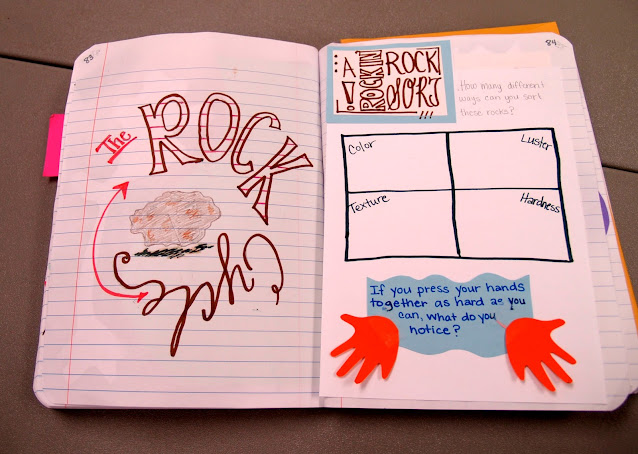 83
The
ROCK
Cycle
84
A
ROCKIN'
ROCK
SORT
!!!
How many different
ways can you sort
these rocks?
Color
Luster
Texture
Hardness
If you press your hands
together as hard as you
can, what do you
notice?